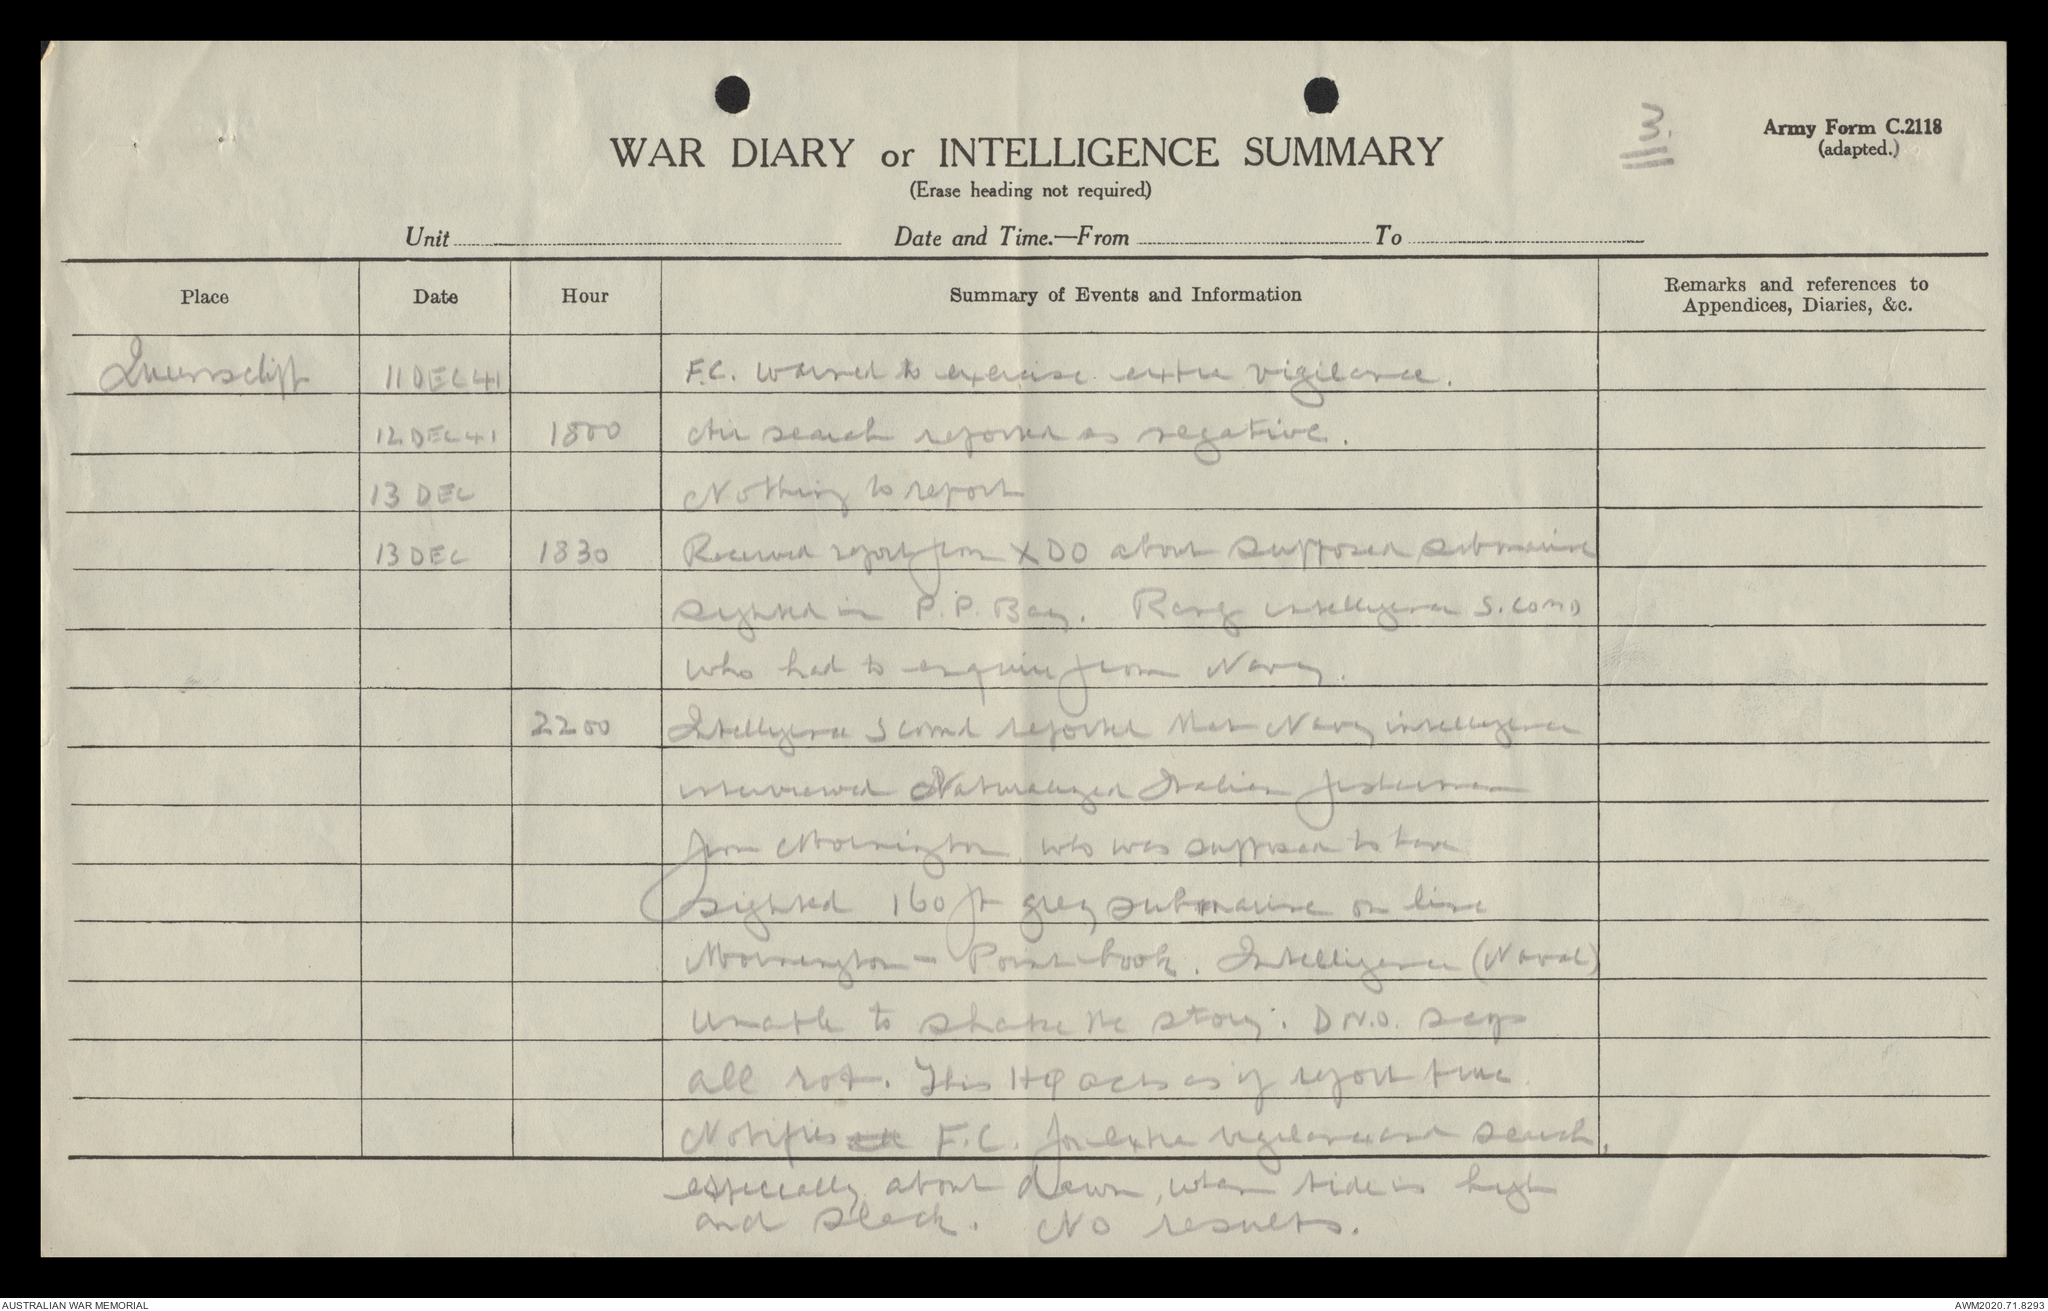 3.
Army Form C.2118
(adapted.)
WAR DIARY or INTELLIGENCE SUMMARY
(Erase heading not required)
Unit Date and Time.—From To
Place Date Hour Summary of Events and Information Remarks and references to
Appendices, Diaries, &c.
Queenscliff 11 DEC 41 F.C. warned to exercise extra vigilance.
12 DEC 41 1800 Air search reported as negative.
13 DEC Nothing to report
13 DEC 1830 Received report from XDO about supposed submarine
sighted in P.P. Bay. Rang intelligence S. Comd
who had to enquire from Navy.
2200 Intelligence S Comd reported that Navy intelligence
interviewed Naturalized Italian fisherman
from Mornington who was supposed to have
sighted 160 ft grey submarine on line
Mornington - Point Cook. Intelligence (Naval)
unable to shake the story. D.N.O. says
all rot. This HQ acts as if report true
Notifies F.C. for extra vigilance and search,
especially about dawn, when tide is high
and slack. No results.
AUSTRALIAN WAR MEMORIAL AWM2020.71.8293